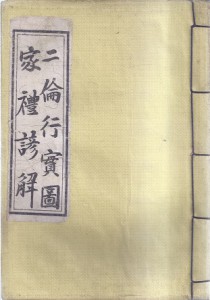 二倫行實圖
家禮諺解